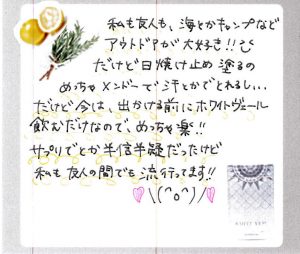 私も友人も、海とかキャンプなど
アウトドアが大好き!!
だけど日焼け止め塗るの
めっちゃメンドーで汗とかでとれるし…
だけど今は、出かける前にホワイトヴェール
飲むだけなので、めっちゃ楽!!
サプリでとか半信半疑だったけど
私も友人の間でも流行ってます!!
\(^o^)/
WHITE VEIL